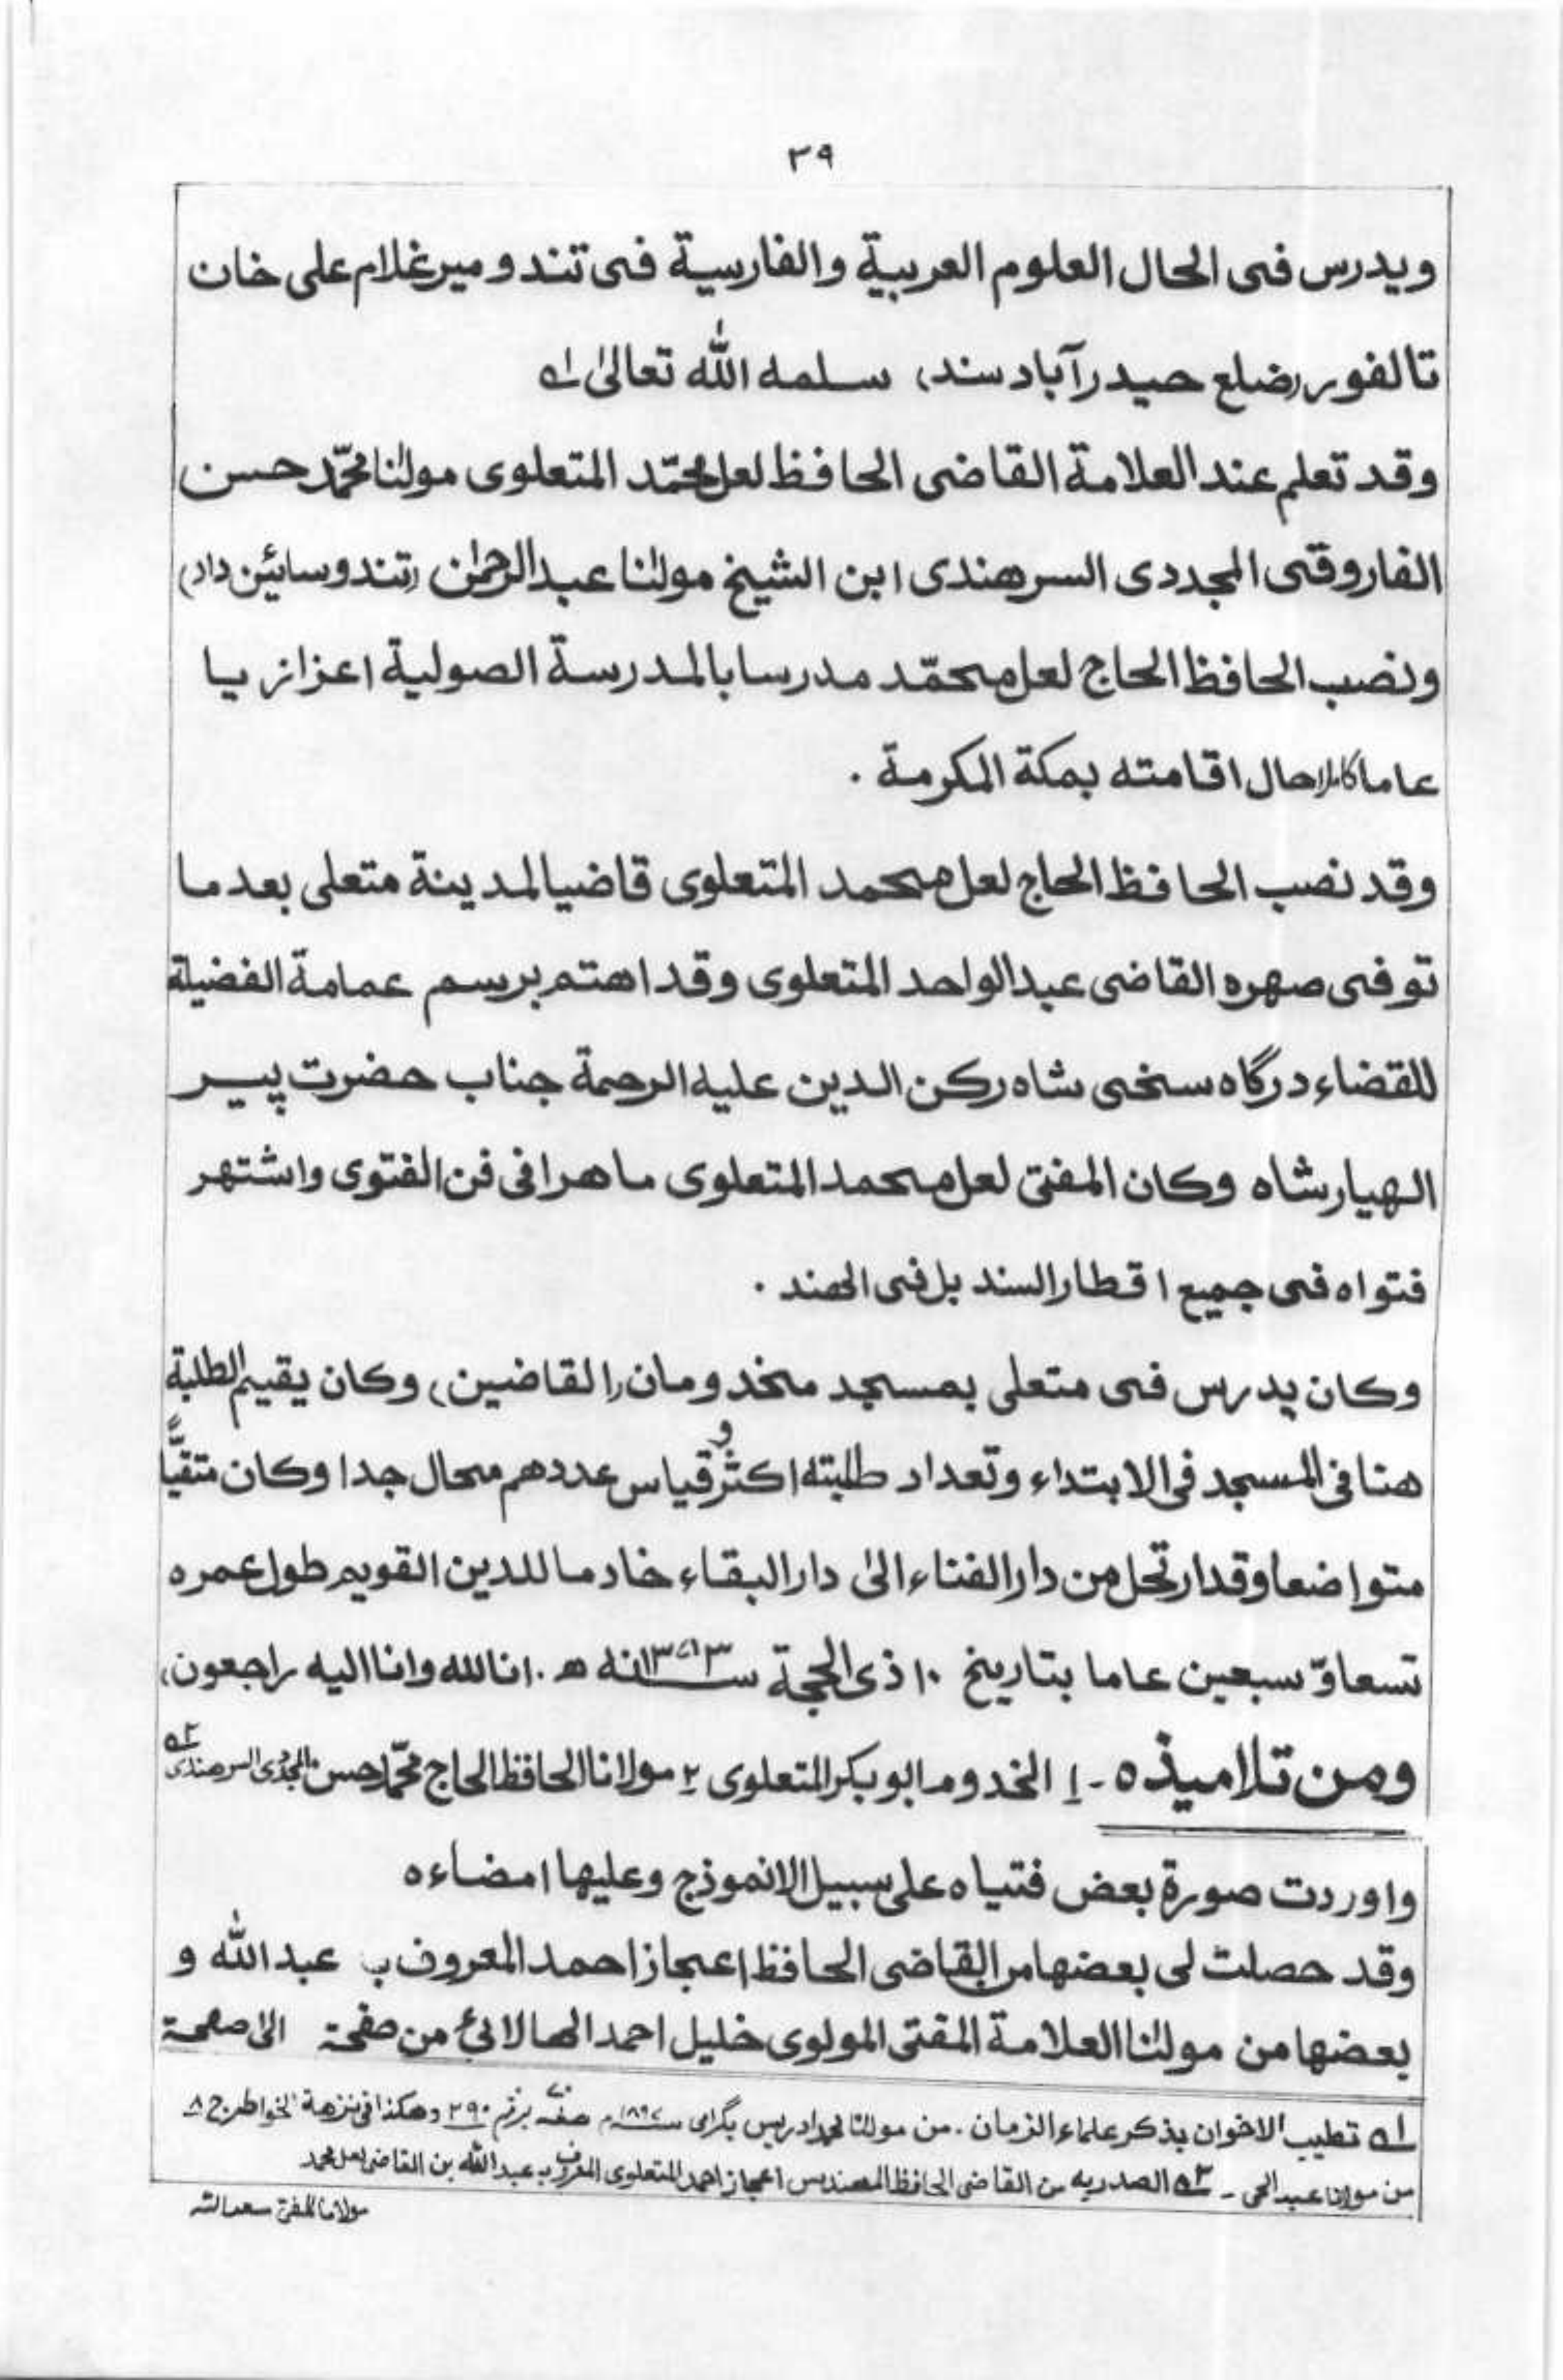 ٣٩
ويدرس فى الحال العلوم العربية والفارسية فى تندو مير غلام على خان
تالفور (ضلع حيدرآباد سند) سلمه الله تعالىٰ ١ه
وقد تعلم عند العلامة القاضى الحافظ لعل محمّد المتعلوى مولٰنا محمّد حسن
الفاروقى المجددى السرهندى ابن الشيخ مولٰنا عبدالرحمٰن (تندو سائين داد)
ونصب الحافظ الحاج لعل محمّد مدرسا بالمدرسة الصولية اعزازيا
عاما كاملا حال اقامته بمكة المكرمة .
وقد نصب الحافظ الحاج لعل محمد المتعلوى قاضيا لمدينة متعلى بعد ما
توفى صهره القاضى عبدالواحد المتعلوى وقد اهتم برسم عمامة الفضيلة
للقضاء درگاه سخى شاه ركن الدين عليه الرحمة جناب حضرت پير
الهيار شاه وكان المفتى لعل محمد المتعلوى ماهرا فى فن الفتوى واشتهر
فتواه فى جميع اقطار السند بل فى الهند .
وكان يدرس فى متعلى بمسجد مخدومان (القاضين) وكان يقيم الطلبة
هنا فى المسجد فى الابتداء وتعداد طلبته اكثر و قياس عددهم محال جدا وكان متقيًّا
متواضعا وقد ارتحل من دار الفناء الىٰ دار البقاء خادما للدين القويم طول عمره
تسعا وّ سبعين عاما بتاريخ ١٠ ذى الحجة سنه ١٣٧٣ ه . انا لله وانا اليه راجعون،
ومن تلاميذه - ١ المخدوم ابوبكر المتعلوى ٢ مولانا الحافظ الحاج محمّد حسن المجددى السرهندى ٢ه
واوردت صورة بعض فتياه على سبيل الانموذج وعليها امضاءه
وقد حصلت لى بعضها من القاضى الحافظ اعجاز احمد المعروف ب عبدالله و
بعضها من مولٰنا العلامة المفتى المولوى خليل احمد الهالائى من صفحة الىٰ صفحة
١ه تطييب الاخوان بذكر علماء الزمان . من مولٰنا محمد ادريس بگرامى سنه ١٨٩٧م صفه برقم ٢٩٠ وهكذا فى نزهة الخواطر ج ٨
من مولانا عبدالحى - ٢ه الصدريه من القاضى الحافظ المهندس اعجاز احمد المتعلوى المعروف ب عبدالله بن القاضى لعل محمد
مولانا المفتى سعدالله